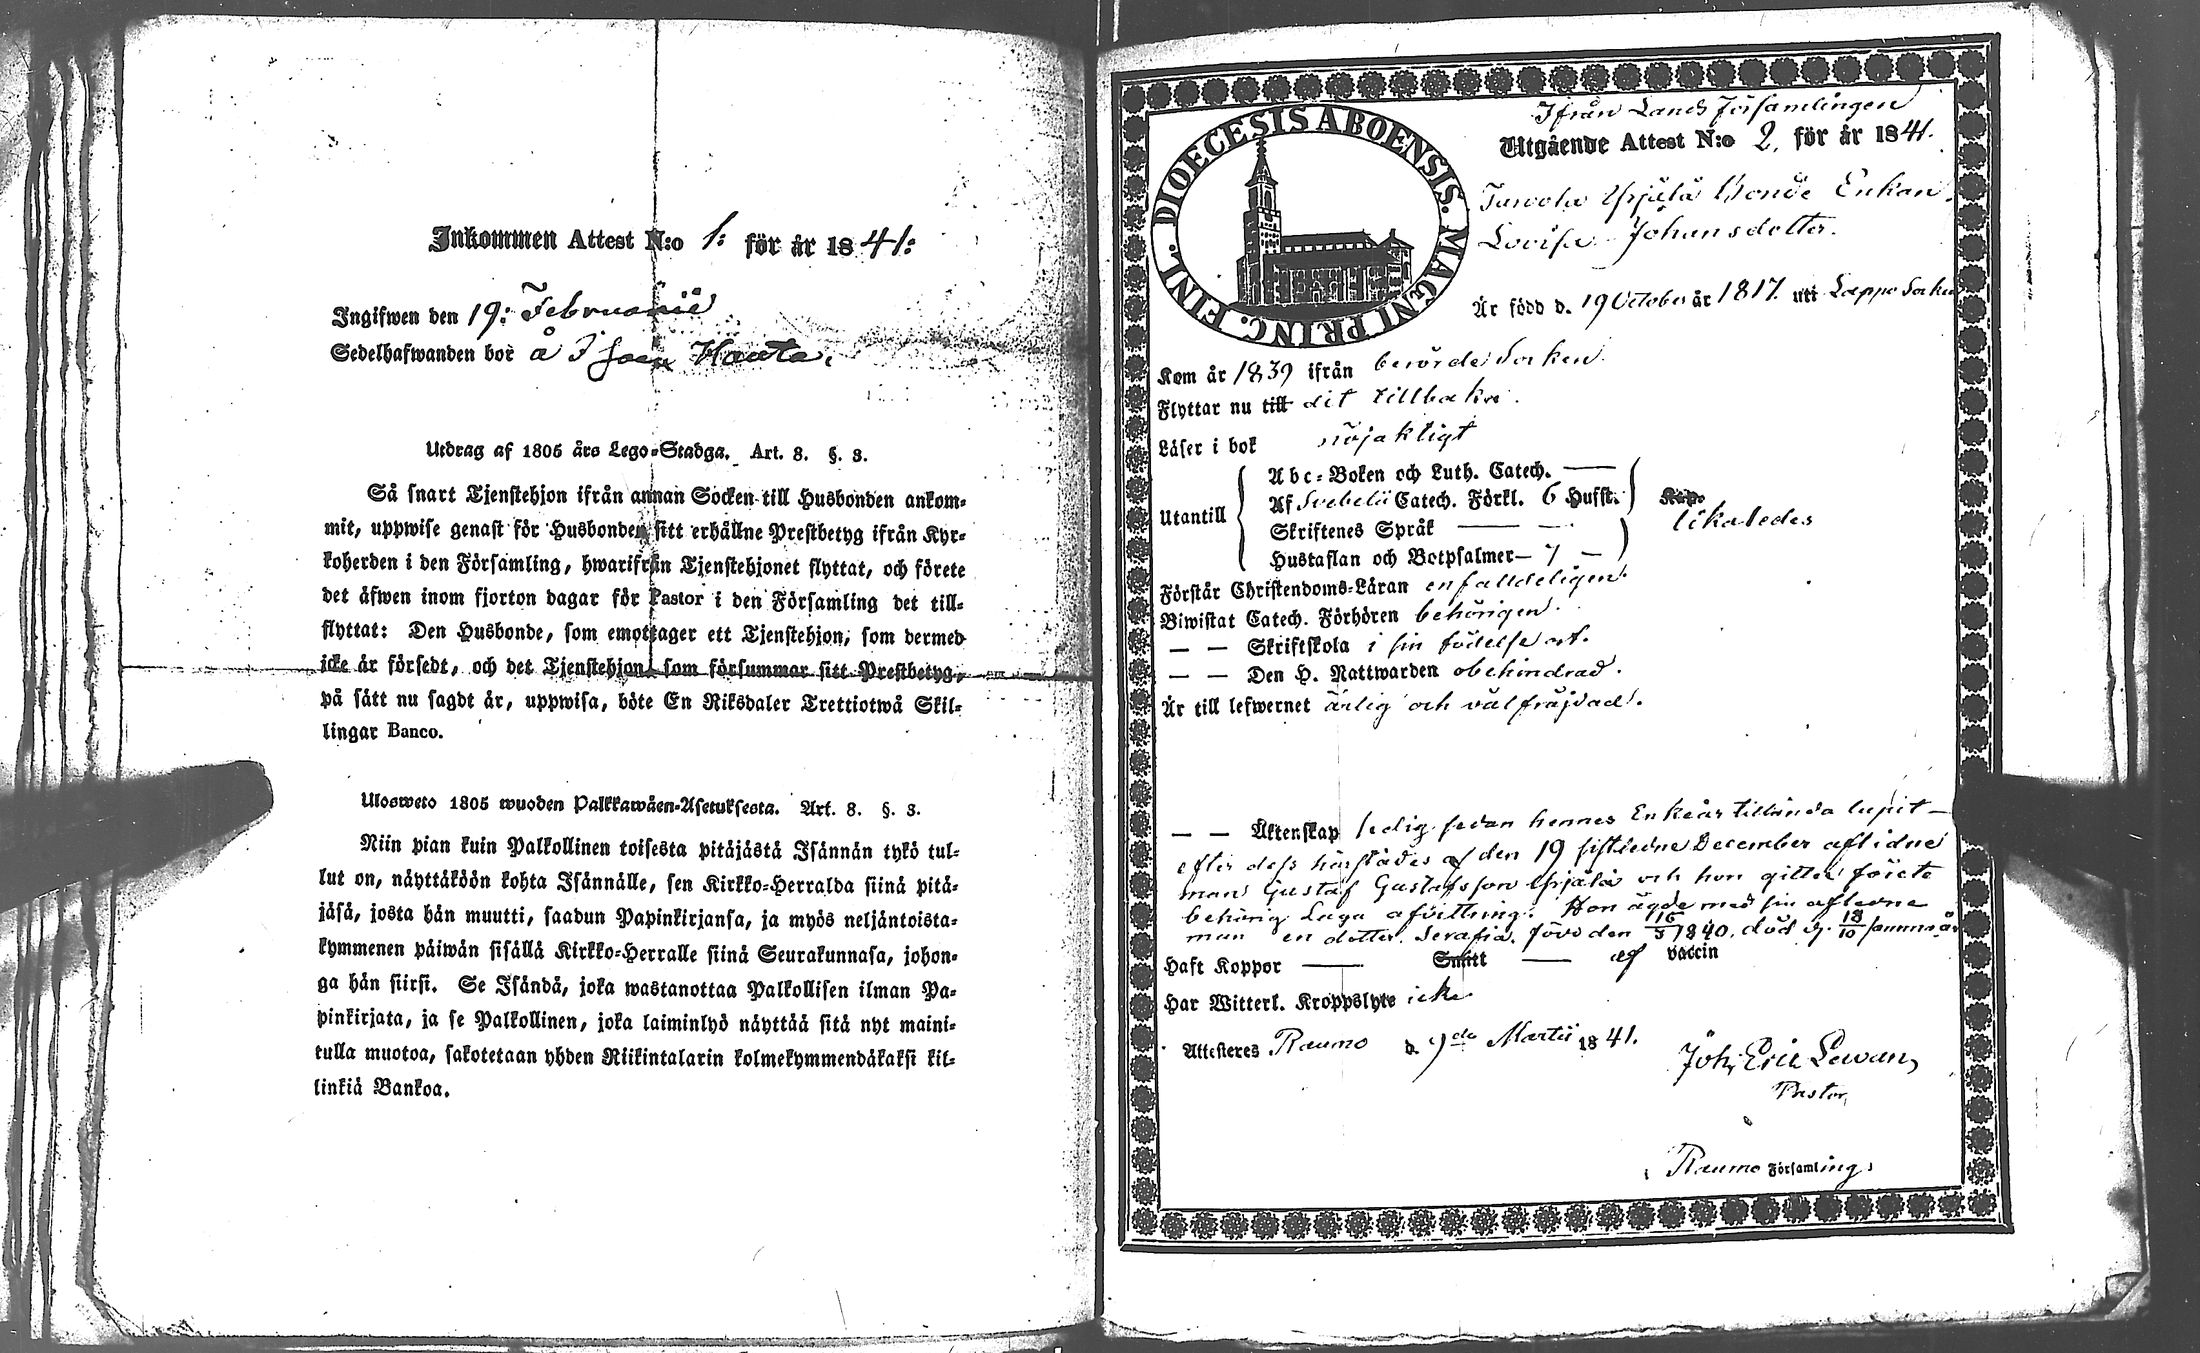 Inkommen Attest N:o 1: för år 1841:
Ingifwen den 19: Februarii
Sedelhafwanden bor å
Utdrag af 1805 års Lego-Stadga. Art. 8. §. 3.
Så snart Tjenstehjon ifrån annan Socken till Husbonden ankom-
mit, uppwise genast för Husbonden sitt erhållne Prestbetyg ifrån Kyr-
koherden i den Församling, hwarifrån Tjenstehjonet flyttat, och förete
det äfwen inom fjorton dagar för Pastor i den Församling det till-
flyttat: Den Husbonde, som emottager ett Tjenstehjon, som dermed
icke är försedt, och det Tjenstehjon som försummar sitt Prestbetyg,
på sätt nu sagdt är, uppwisa, böte En Riksdaler Trettiotwå Skil-
lingar Banco.
Ulosweto 1805 wuoden Palkkawäen-Asetuksesta. Art. 8. §. 3.
Niin pian kuin Palkollinen toisesta pitäjästä Isännän tykö tul-
lut on, näyttäköön kohta Isännälle, sen Kirkko-Herralda siinä pitä-
jäsä, josta hän muutti, saadun Papinkirjansa, ja myös neljäntoista-
kymmenen päiwän sisällä Kirkko-Herralle siinä Seurakunnasa, johon-
ga hän siirsi. Se Isändä, joka wastanottaa Palkollisen ilman Pa-
pinkirjata, ja se Palkollinen, joka laiminlyö näyttää sitä nyt maini-
tulla muotoa, sakotetaan yhden Riikintalarin kolmekymmendäkaksi kil-
linkiä Bankoa.
DIOECESIS ABOENSIS. MAGNI PRINC. FINL.
Ifrån Lands Församlingen
Utgående Attest N:o 2. för år 1841.
Bonde Enkan
Lovisa Johansdotter.
Är född d. 19 October år 1817. uti Lappo Socken
Kom år 1839 ifrån berörde Socken
Flyttar nu till dit tillbaka.
Läser i bok nöjaktigt
Utantill
Abc-Boken och Luth. Catech. —
Af Svebelii Catech. Förkl. 6 Hufst.
Skriftenes Språk — —
Hustaflan och Botpsalmer — 7 —
likaledes
Förstår Christendoms-Läran enfalldeligen.
Biwistat Catech. Förhören behörigen.
— — Skriftskola i sin födelse ort.
— — Den H. Nattwarden obehindrad.
Är till lefwernet ärlig och välfräjdad.
— — Äktenskap ledig sedan hennes Enkeår tilländalupit
efter dess härstädes den 19 sistledne December aflidne
man Gustaf Gustafsson och hon gitter förete
behörig Laga afvittring. Hon ägde med sin aflevne
man en dotter Serafia, född den 16/5 1840, död d. 18/10 samma år
Haft Koppor — Smitt — af vaccin
Har Witterl. Kroppslyte icke
Attesteres Raumo d. 9de Martii 1841.
Joh. Eric Lewan,
Pastor
i Raumo Församling.